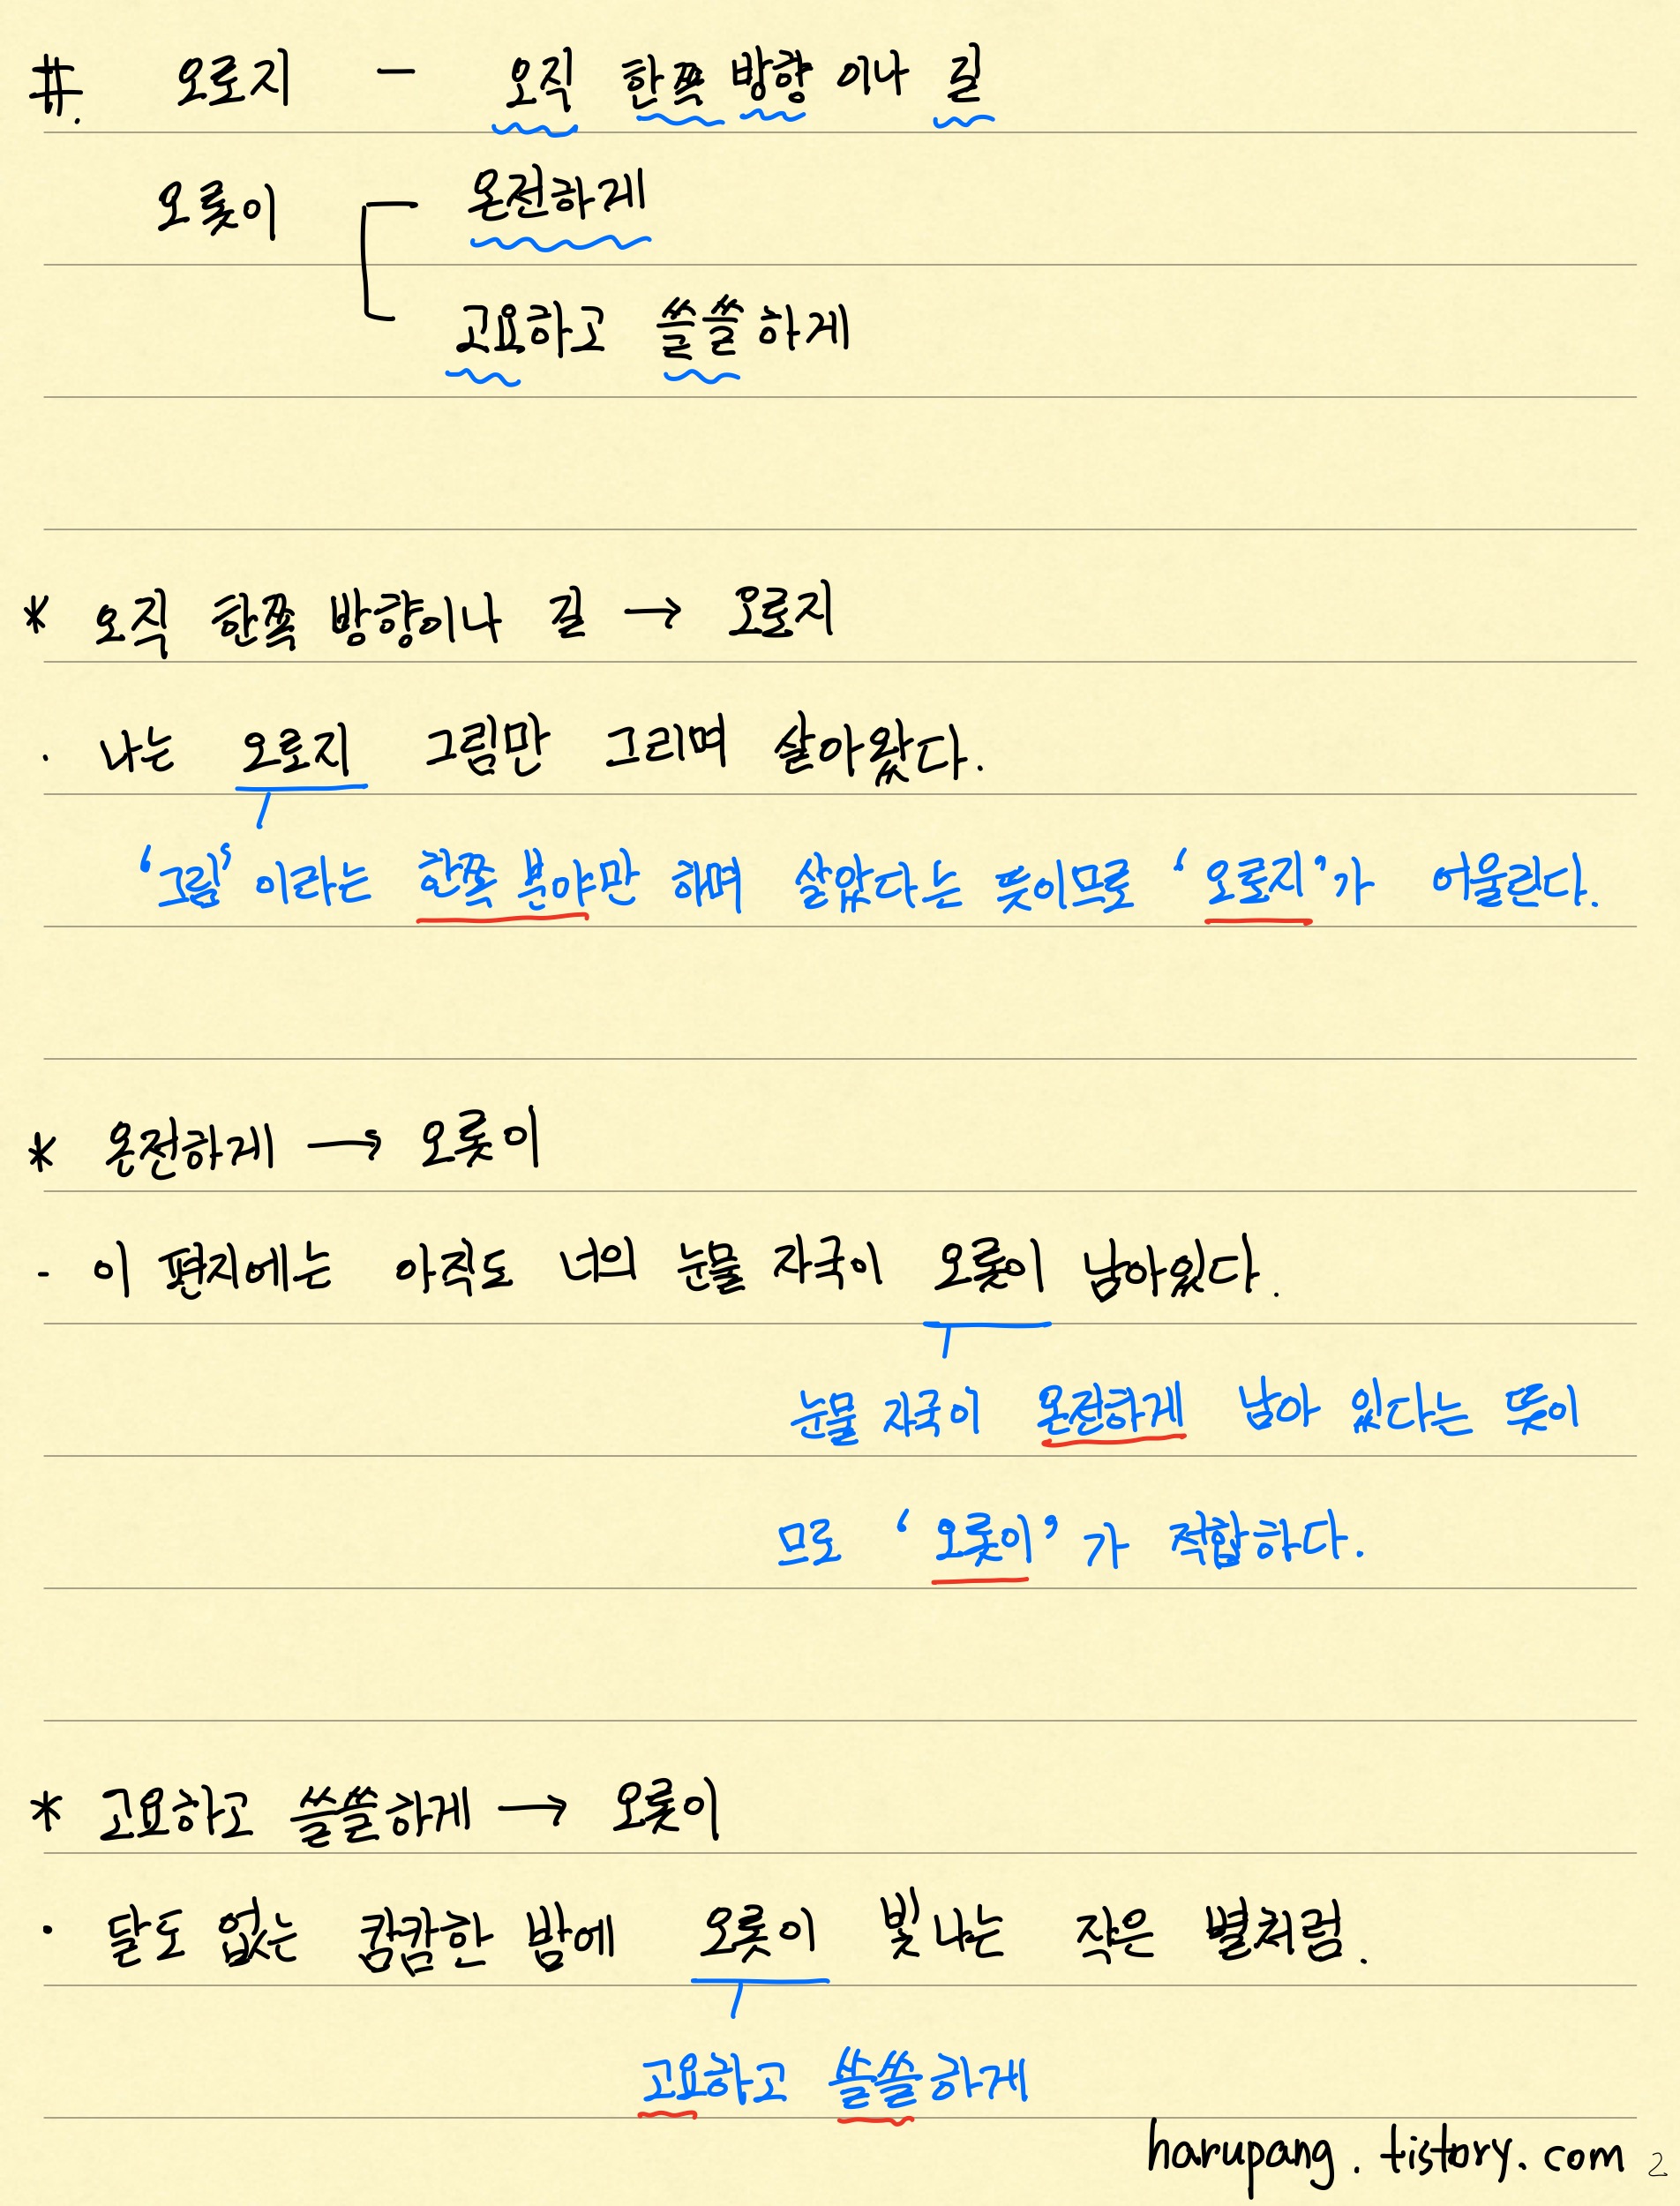 #. 오로지 - 오직 한쪽 방향이나 길
오롯이 온전하게
고요하고 쓸쓸하게
* 오직 한쪽 방향이나 길 → 오로지
· 나는 오로지 그림만 그리며 살아왔다.
'그림'이라는 한쪽 분야만 하며 살았다는 뜻이므로 '오로지'가 어울린다.
* 온전하게 → 오롯이
- 이 편지에는 아직도 너의 눈물 자국이 오롯이 남아있다.
눈물 자국이 온전하게 남아 있다는 뜻이
므로 '오롯이'가 적합하다.
* 고요하고 쓸쓸하게 → 오롯이
· 달도 없는 캄캄한 밤에 오롯이 빛나는 작은 별처럼.
고요하고 쓸쓸하게
harupang.tistory.com 2